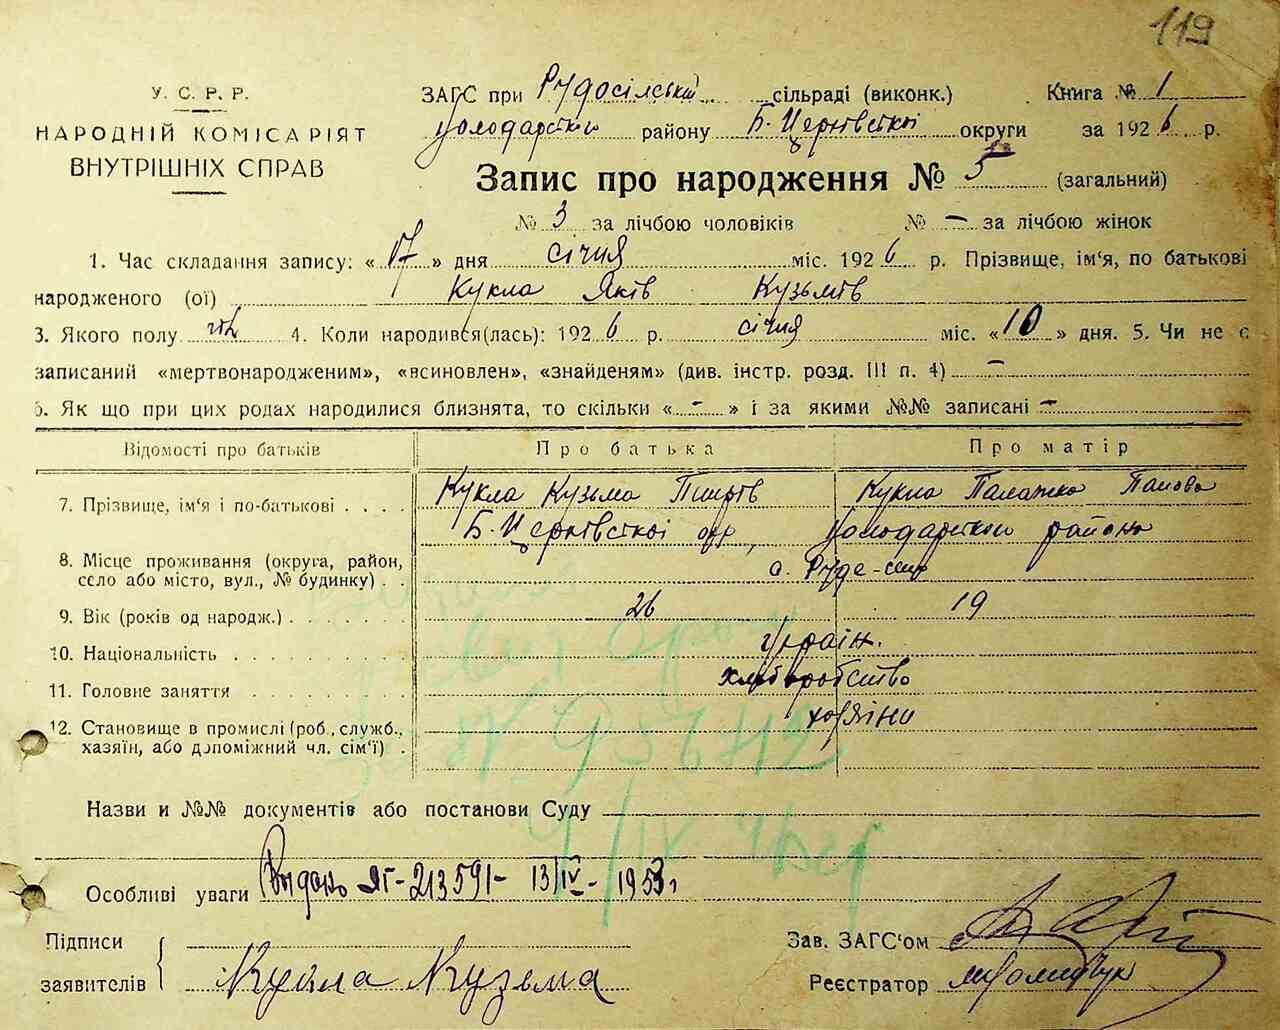 119
У. С. Р. Р.
НАРОДНІЙ КОМІСАРІЯТ
ВНУТРІШНІХ СПРАВ
ЗАГС при Рудосільській сільраді (виконк.) Книга № 1
Володарського району Б-Церківської округи за 1926 р.
Запис про народження № 5 (загальний)
№ 3 за лічбою чоловіків № – за лічбою жінок
1. Час складання запису: « 17 » дня січня міс. 1926 р. Прізвище, ім'я, по батькові
народженого (ої) Кукла Яків Кузьмів
3. Якого полу чол 4. Коли народився(лась): 1926 р. січня міс. « 10 » дня. 5. Чи не є
записаний «мертвонародженим», «всиновлен», «знайденям» (див. інстр. розд. III п. 4) –
6. Як що при цих родах народилися близнята, то скільки « – » і за якими №№ записані –
Відомості про батьків Про батька Про матір
7. Прізвище, ім'я і по-батькові . . . . Кукла Кузьма Кукла Палажка
Б-Церківської окр, Володарського району
8. Місце проживання (округа, район,
село або місто, вул., № будинку) . . с. Руде-село
9. Вік (років од народж.) . . . . . . . 26 19
10. Національність . . . . . . . . . україн.
11. Головне заняття . . . . . . . . хліборобство
12. Становище в промислі (роб., служб.,
хазяїн, або допоміжний чл. сім'ї) . хазяїни
№ 95
Назви и №№ документів або постанови Суду
Особливі уваги Выдано ЯГ-213591- 13/IV - 1953 г
Підписи
заявителів Кукла Кузьма
Зав. ЗАГС'ом
Реєстратор